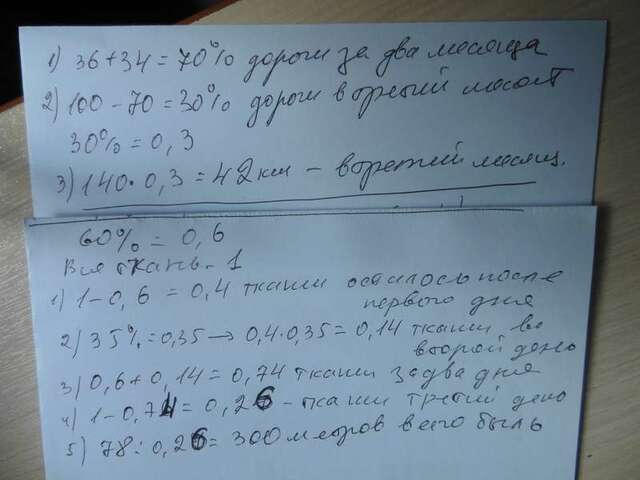 1) 36+34 = 70% дороги за два месяца
2) 100 - 70 = 30% дороги в третий месяц
30% = 0,3
3) 140 · 0,3 = 42 км - в третий месяц.
60% = 0,6
Вся ткань - 1
1) 1-0,6 = 0,4 ткани осталось после
первого дня
2) 35% = 0,35 → 0,4·0,35 = 0,14 ткани во
второй день
3) 0,6+0,14 = 0,74 ткани за два дня
4) 1-0,74 = 0,26 - ткани третий день
5) 78 : 0,26 = 300 метров всего было